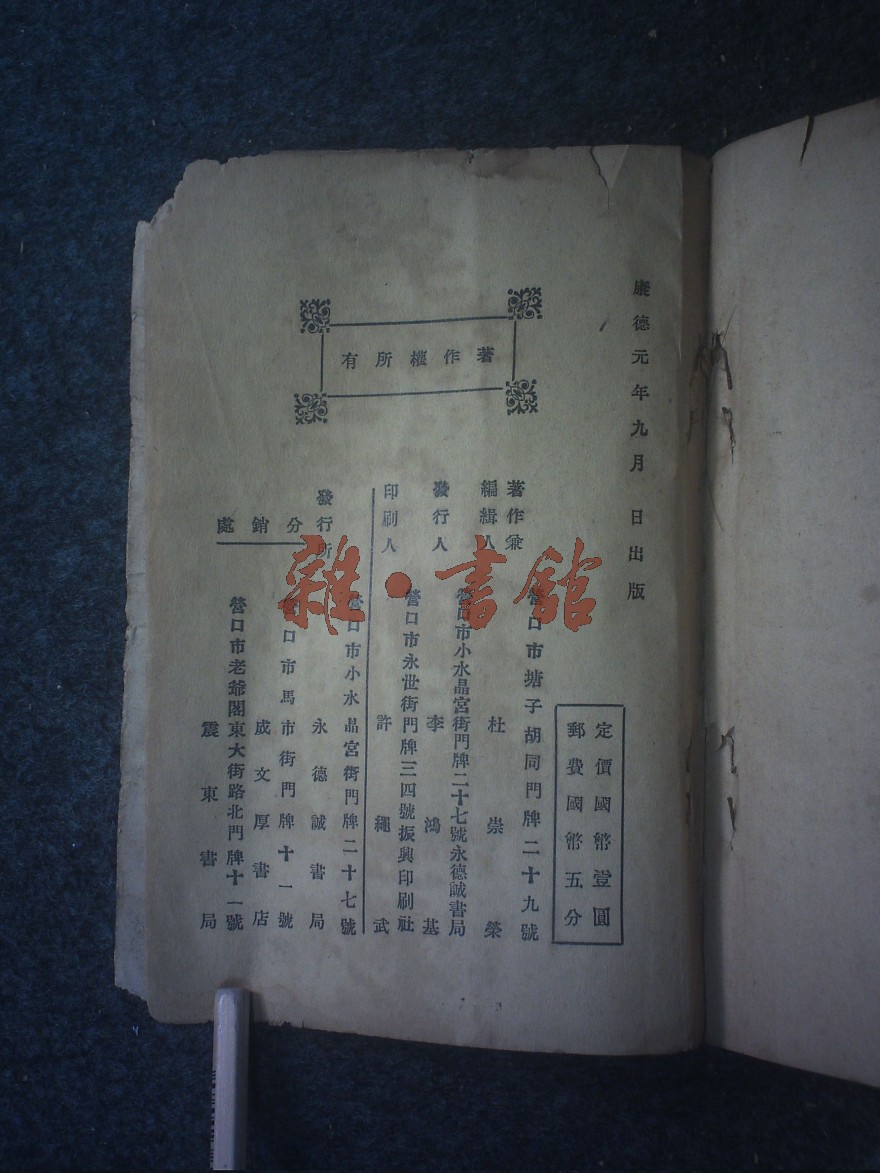 康德元年九月　日出版
著作權所有
定價國幣壹圓
郵費國幣五分
著作兼
編緝人
營口市塘子胡同門牌二十九號
杜崇榮
發行人
營口市小水晶宮街門牌二十七號永德誠書局
李鴻基
印刷人
營口市永世街門牌三四號振興印刷社
許繩武
發行所
營口市小水晶宮街門牌二十七號
永德誠書局
分銷處
營口市馬市街門牌十一號
成文厚書店
營口市老爺閣東大街路北門牌十一號
震東書局
雜·書館